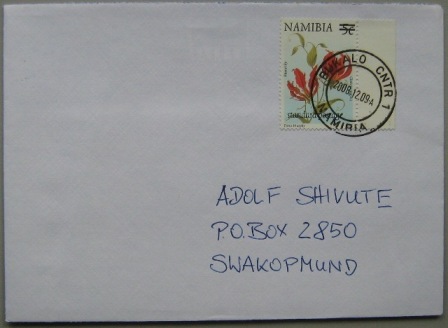 NAMIBIA 5c
BUKALO CNTR 1
2008-12-09A
NAMIBIA
ADOLF SHIVUTE
P.O.BOX 2850
SWAKOPMUND